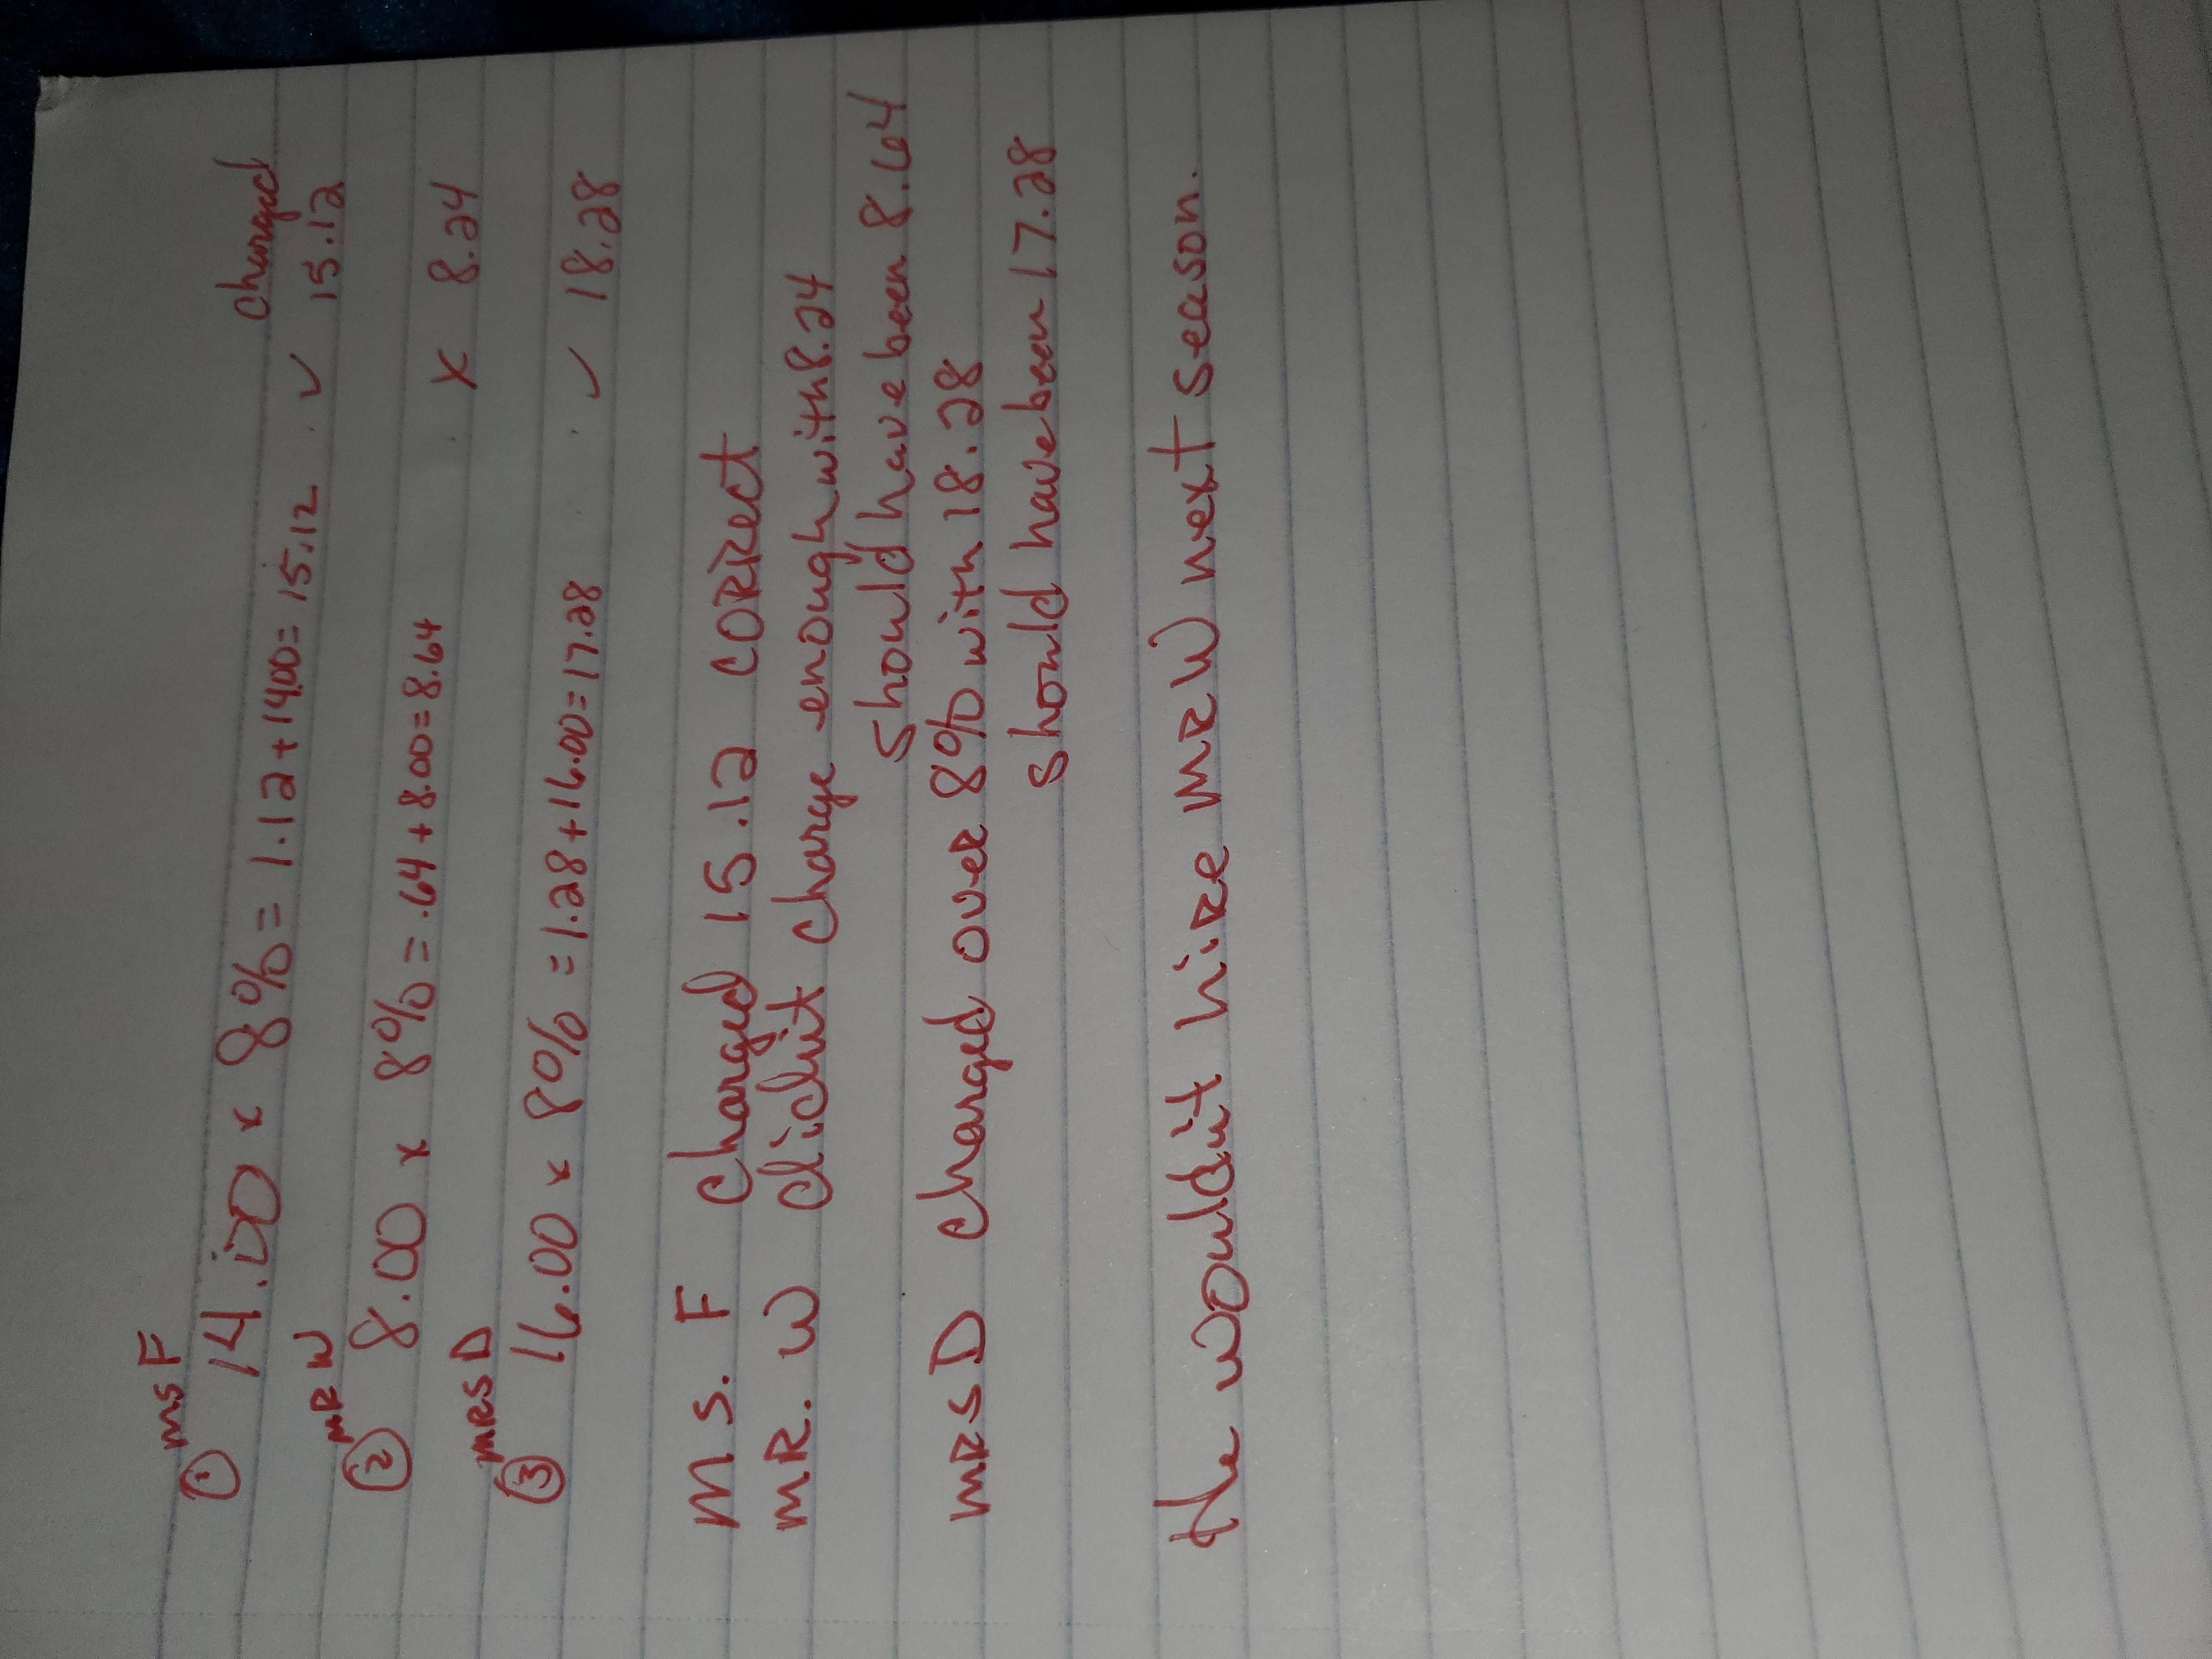 charged
ms F
① 14.00 x 8% = 1.12 + 14.00 = 15.12 ✓ 15.12
mR W
② 8.00 x 8% = .64 + 8.00 = 8.64 x 8.24
mRS D
③ 16.00 x 8% = 1.28 + 16.00 = 17.28 ✓ 18.28
ms. F charged 15.12 coRRect
mR. W didn't charge enough with 8.24
should have been 8.64
mRS D charged oveR 8% with 18.28
should have been 17.28
He wouldn't hiRe mR W next season.